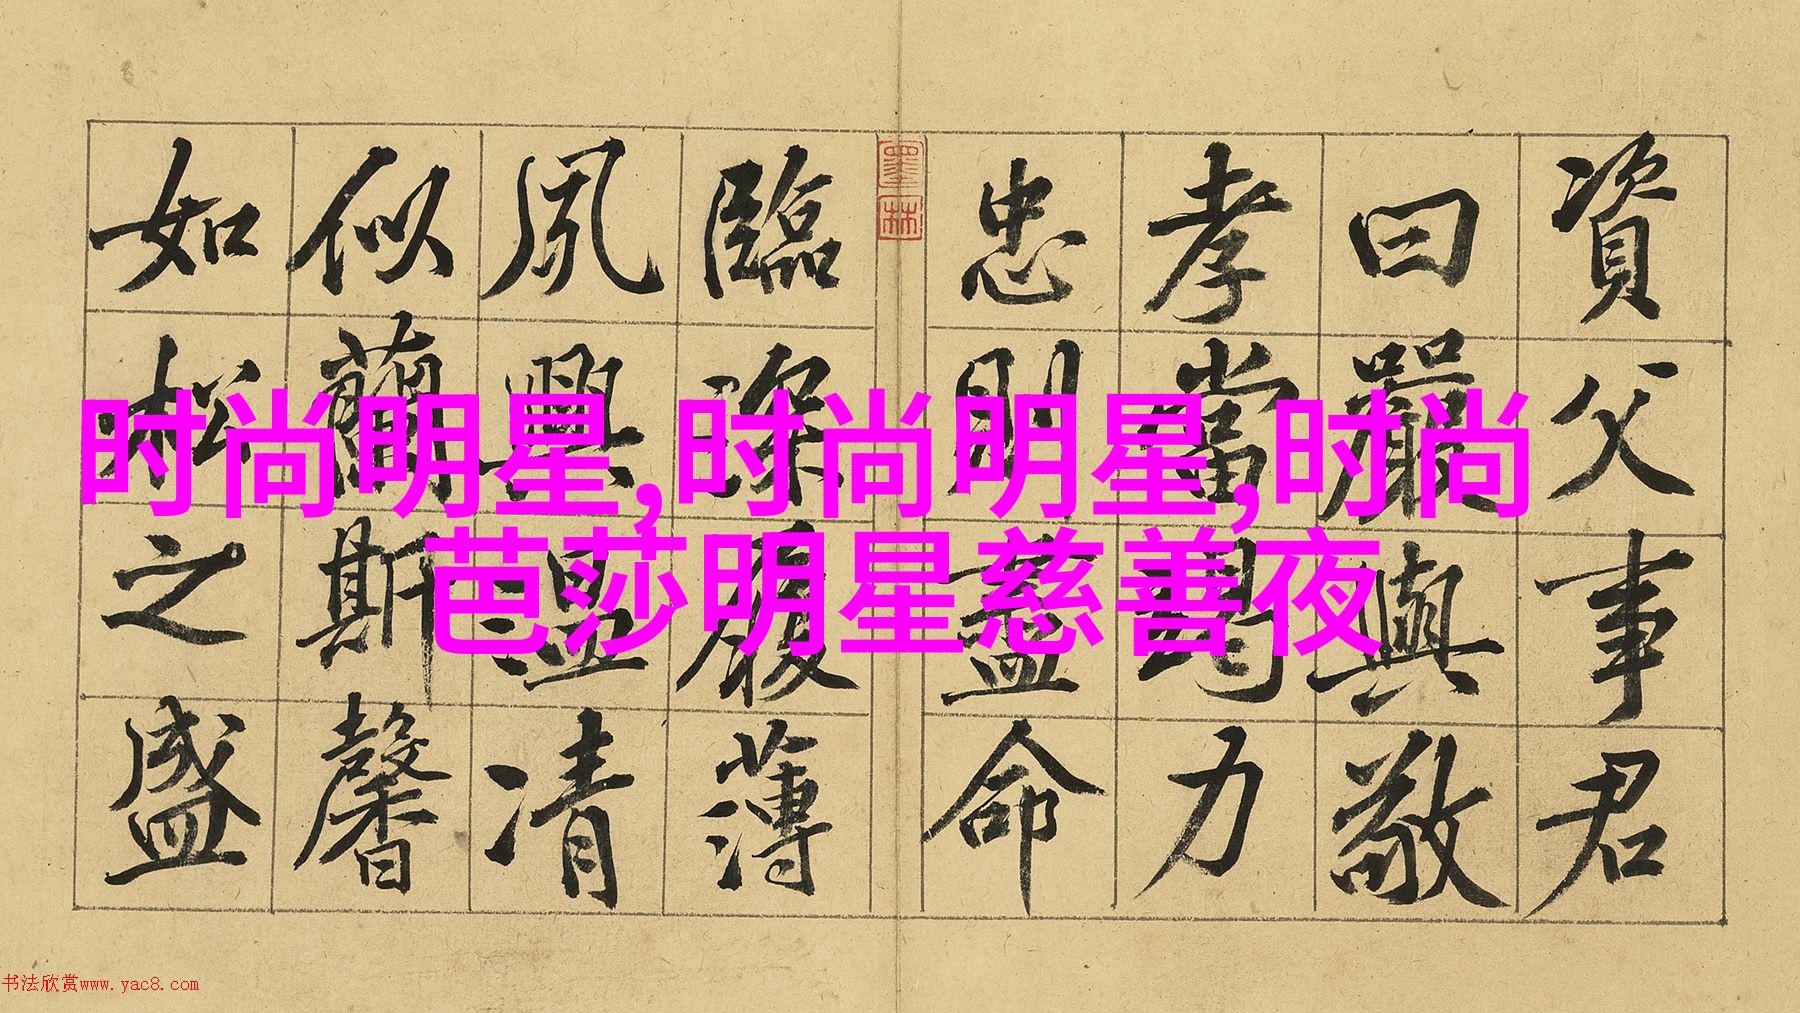 時尚明星,时尚明星,时尚
芭莎明星慈善夜
資父事君
曰嚴與敬
孝當竭力
忠則盡命
臨深履薄
夙興温凊
似蘭斯馨
如松之盛
墨林
书法欣赏www.yac8.com